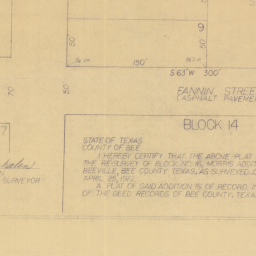 9
50'
50'
150'
S 63° W 300'
50
70
FANNIN STREET
(ASPHALT PAVEMENT
BLOCK 14
7
SURVEYOR
STATE OF TEXAS
COUNTY OF BEE
I HEREBY CERTIFY THAT THE ABOVE PLAT
THE RESURVEY OF BLOCK NO. 16, MORRIS ADDIT
BEEVILLE, BEE COUNTY, TEXAS, AS SURVEYED
APRIL 25, 1972.
A PLAT OF SAID ADDITION IS OF RECORD IN
OF THE DEED RECORDS OF BEE COUNTY, TEXA